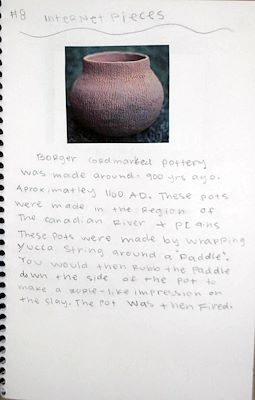 #8 Internet Pieces
Borger Cordmarked pottery
was made around 900 yrs ago.
Aproximatley 1100 AD. These pots
were made in the Region of
The Canadian River + Plans
These pots were made by wrapping
Yucca String around a Paddle.
You would then Rubb the Paddle
down the side of the pot to
make a rope-like impression on
the clay. The pot was then fired.